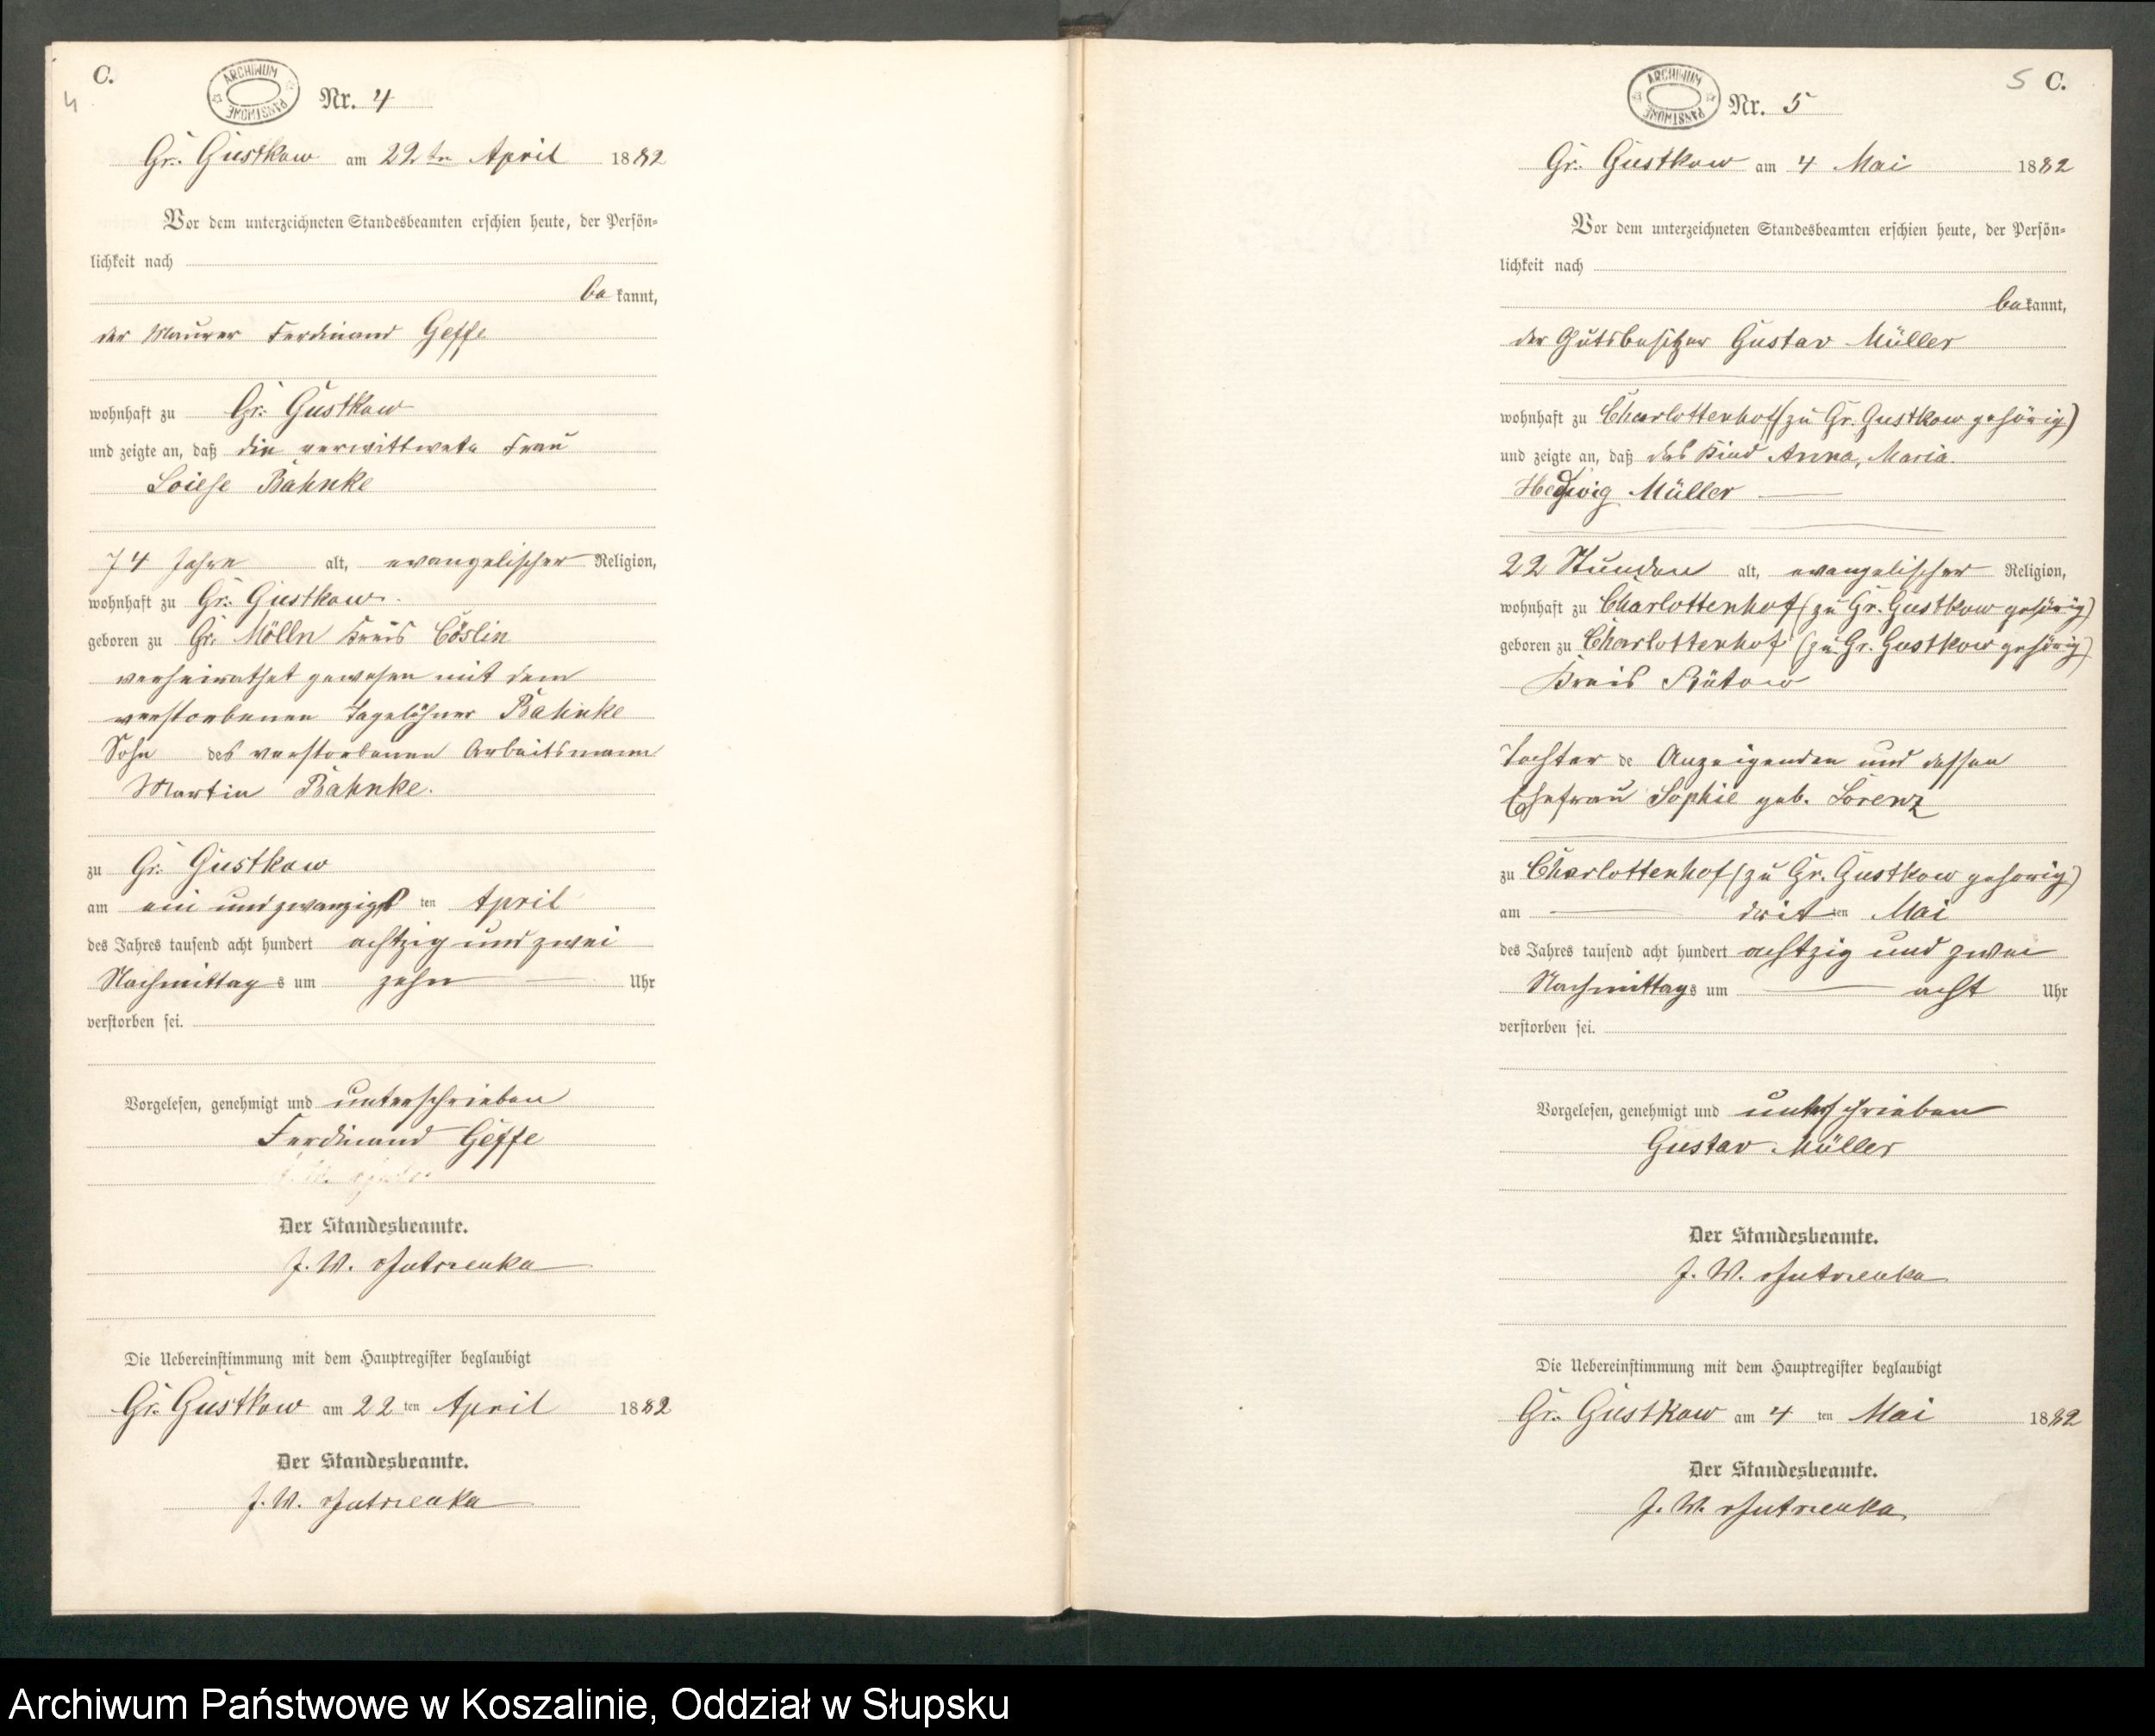 C.
4
ARCHIWUM PAŃSTWOWE
Nr. 4
Gr. Gustkow am 22 ten April 1882
Vor dem unterzeichneten Standesbeamten erschien heute, der Persön-
lichkeit nach
be kannt,
der Maurer Ferdinand Geffe
wohnhaft zu Gr. Gustkow
und zeigte an, daß die verwittwete Frau
Loiese Bahnke
74 Jahre alt, evangelischer Religion,
wohnhaft zu Gr. Gustkow
geboren zu Gr. Mölln Kreis Cöslin
verheirathet gewesen mit dem
verstorbenen Tagelöhner Bahnke
Sohn des verstorbenen Arbeitsmann
Martin Bahnke.
zu Gr. Gustkow
am ein und zwanzigst ten April
des Jahres tausend acht hundert achtzig und zwei
Nachmittag s um zehn Uhr
verstorben sei.
Vorgelesen, genehmigt und unterschrieben
Ferdinand Geffe
Der Standesbeamte.
J. W.
Die Uebereinstimmung mit dem Hauptregister beglaubigt
Gr. Gustkow am 22 ten April 1882
Der Standesbeamte.
J. W.
5 C.
ARCHIWUM PAŃSTWOWE
Nr. 5
Gr. Gustkow am 4 Mai 1882
Vor dem unterzeichneten Standesbeamten erschien heute, der Persön-
lichkeit nach
bekannt,
der Gutsbesitzer Gustav Müller
wohnhaft zu Charlottenhof (zu Gr. Gustkow gehörig)
und zeigte an, daß das Kind Anna, Maria
Hedwig Müller
22 Stunden alt, evangelischer Religion,
wohnhaft zu Charlottenhof (zu Gr. Gustkow gehörig)
geboren zu Charlottenhof (zu Gr. Gustkow gehörig)
Kreis Bütow
Tochter de Anzeigenden und dessen
Ehefrau Sophie geb. Lorenz
zu Charlottenhof (zu Gr. Gustkow gehörig)
am drit ten Mai
des Jahres tausend acht hundert achtzig und zwei
Nachmittags um acht Uhr
verstorben sei.
Vorgelesen, genehmigt und unterschrieben
Gustav Müller
Der Standesbeamte.
J. W.
Die Uebereinstimmung mit dem Hauptregister beglaubigt
Gr. Gustkow am 4 ten Mai 1882
Der Standesbeamte.
J. W.
Archiwum Państwowe w Koszalinie, Oddział w Słupsku